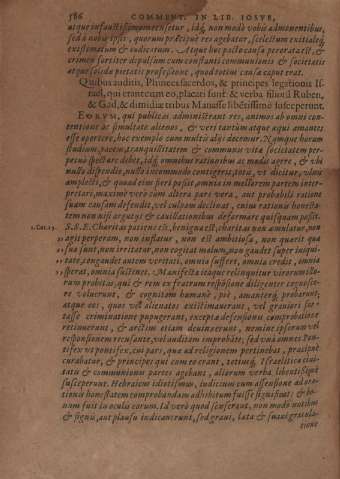 586 COMMENT. IN LIB. IOSVE,
atque infaustissimum censetur, idq́, non modò vobis admonentibus,
sed à nobis ipsis, quorum præcipuè res agebatur, scelestum exitialeq́;
existimatum & iudicatum. Atque hoc pacto causa perorata est, &
crimen forsiter depulsum cum constanti communionis & societatis
atque solida pietatis professione, quod totius causa caput erat.
Quibus auditis, Phinees sacerdos, & principes legationis Is-
rael, qui erant cum eo, placati sunt: & verba filiorū Ruben,
& Gad, & dimidiæ tribus Manasse libētissimè susceperunt.
EORVM, qui publicas administrant res, animos ab omni con-
tentione ac simultate alienos, & veri tantùm atque æqui amantes
esse oportere, hoc exemplo cum multis alijs docemur. Namque horum
studium, pacem, tranquillitatem & communis vita societatem per-
petuò spectare debet, idq́; omnibus rationibus ac modis agere, & vbi
nulla dispendio, nulla incommodo contigerit, totis, vt dicitur, vlnis
amplecti, & quoad eius fieri possit omnia in meliorem partem inter-
pretari, maximè vero cum altera pars vera, aut probabili ratione
suam causam defendit, vel culpam declinat, cuius rationis honesta-
tem non nisi argutijs & cauillationibus deformare quispiam possit.
1. Cor. 13. S.S.E. Charitas patiens est, benigna est, charitas non æmulatur, non
agit perperam, non inflatur, non est ambitiosa, non quærit quæ
sua sunt, non irritatur, non cogitat malum, non gaudet super iniqui-
tate, congaudet autem veritati, omnia suffert, omnia credit, omnia
sperat, omnia sustinet. Manifesta itaque relinquitur virorum illo-
rum probitas, qui & rem ex fratrum responsione diligenter cognosce-
re voluerunt, & cognitam humanè, piè, amanterq́; probarunt,
atque eos, quos vel alienatos existimauerant, vel grauiori
crimination pupugerant, excepta defensionis comprobatione
retinuerunt, & arctius etiam deuinxerunt, nemine ipsorum vel
responsionem recusante, vel auditam improbāte; sed vnà omnes Pon-
tifex vt pontifex, cui pars, quæ ad religionem pertinebat, præcipuè
curabatur, & principes qui cum eo erant, totiusq́; Israëlitica ciui-
tatis & communionis partes agebant, aliorum verba libentissimè
susceperunt. Hebraicus idiotismus, iudicium cum assensione ad ora-
tionis honestatem comprobandam adhibitum fuisse significat: & bo-
num fuit in oculis eorum. Id verò quod senserunt, non modò nutibus
& signis, aut plausu indicarunt, sed grata, lata & suaui gratula-
tione